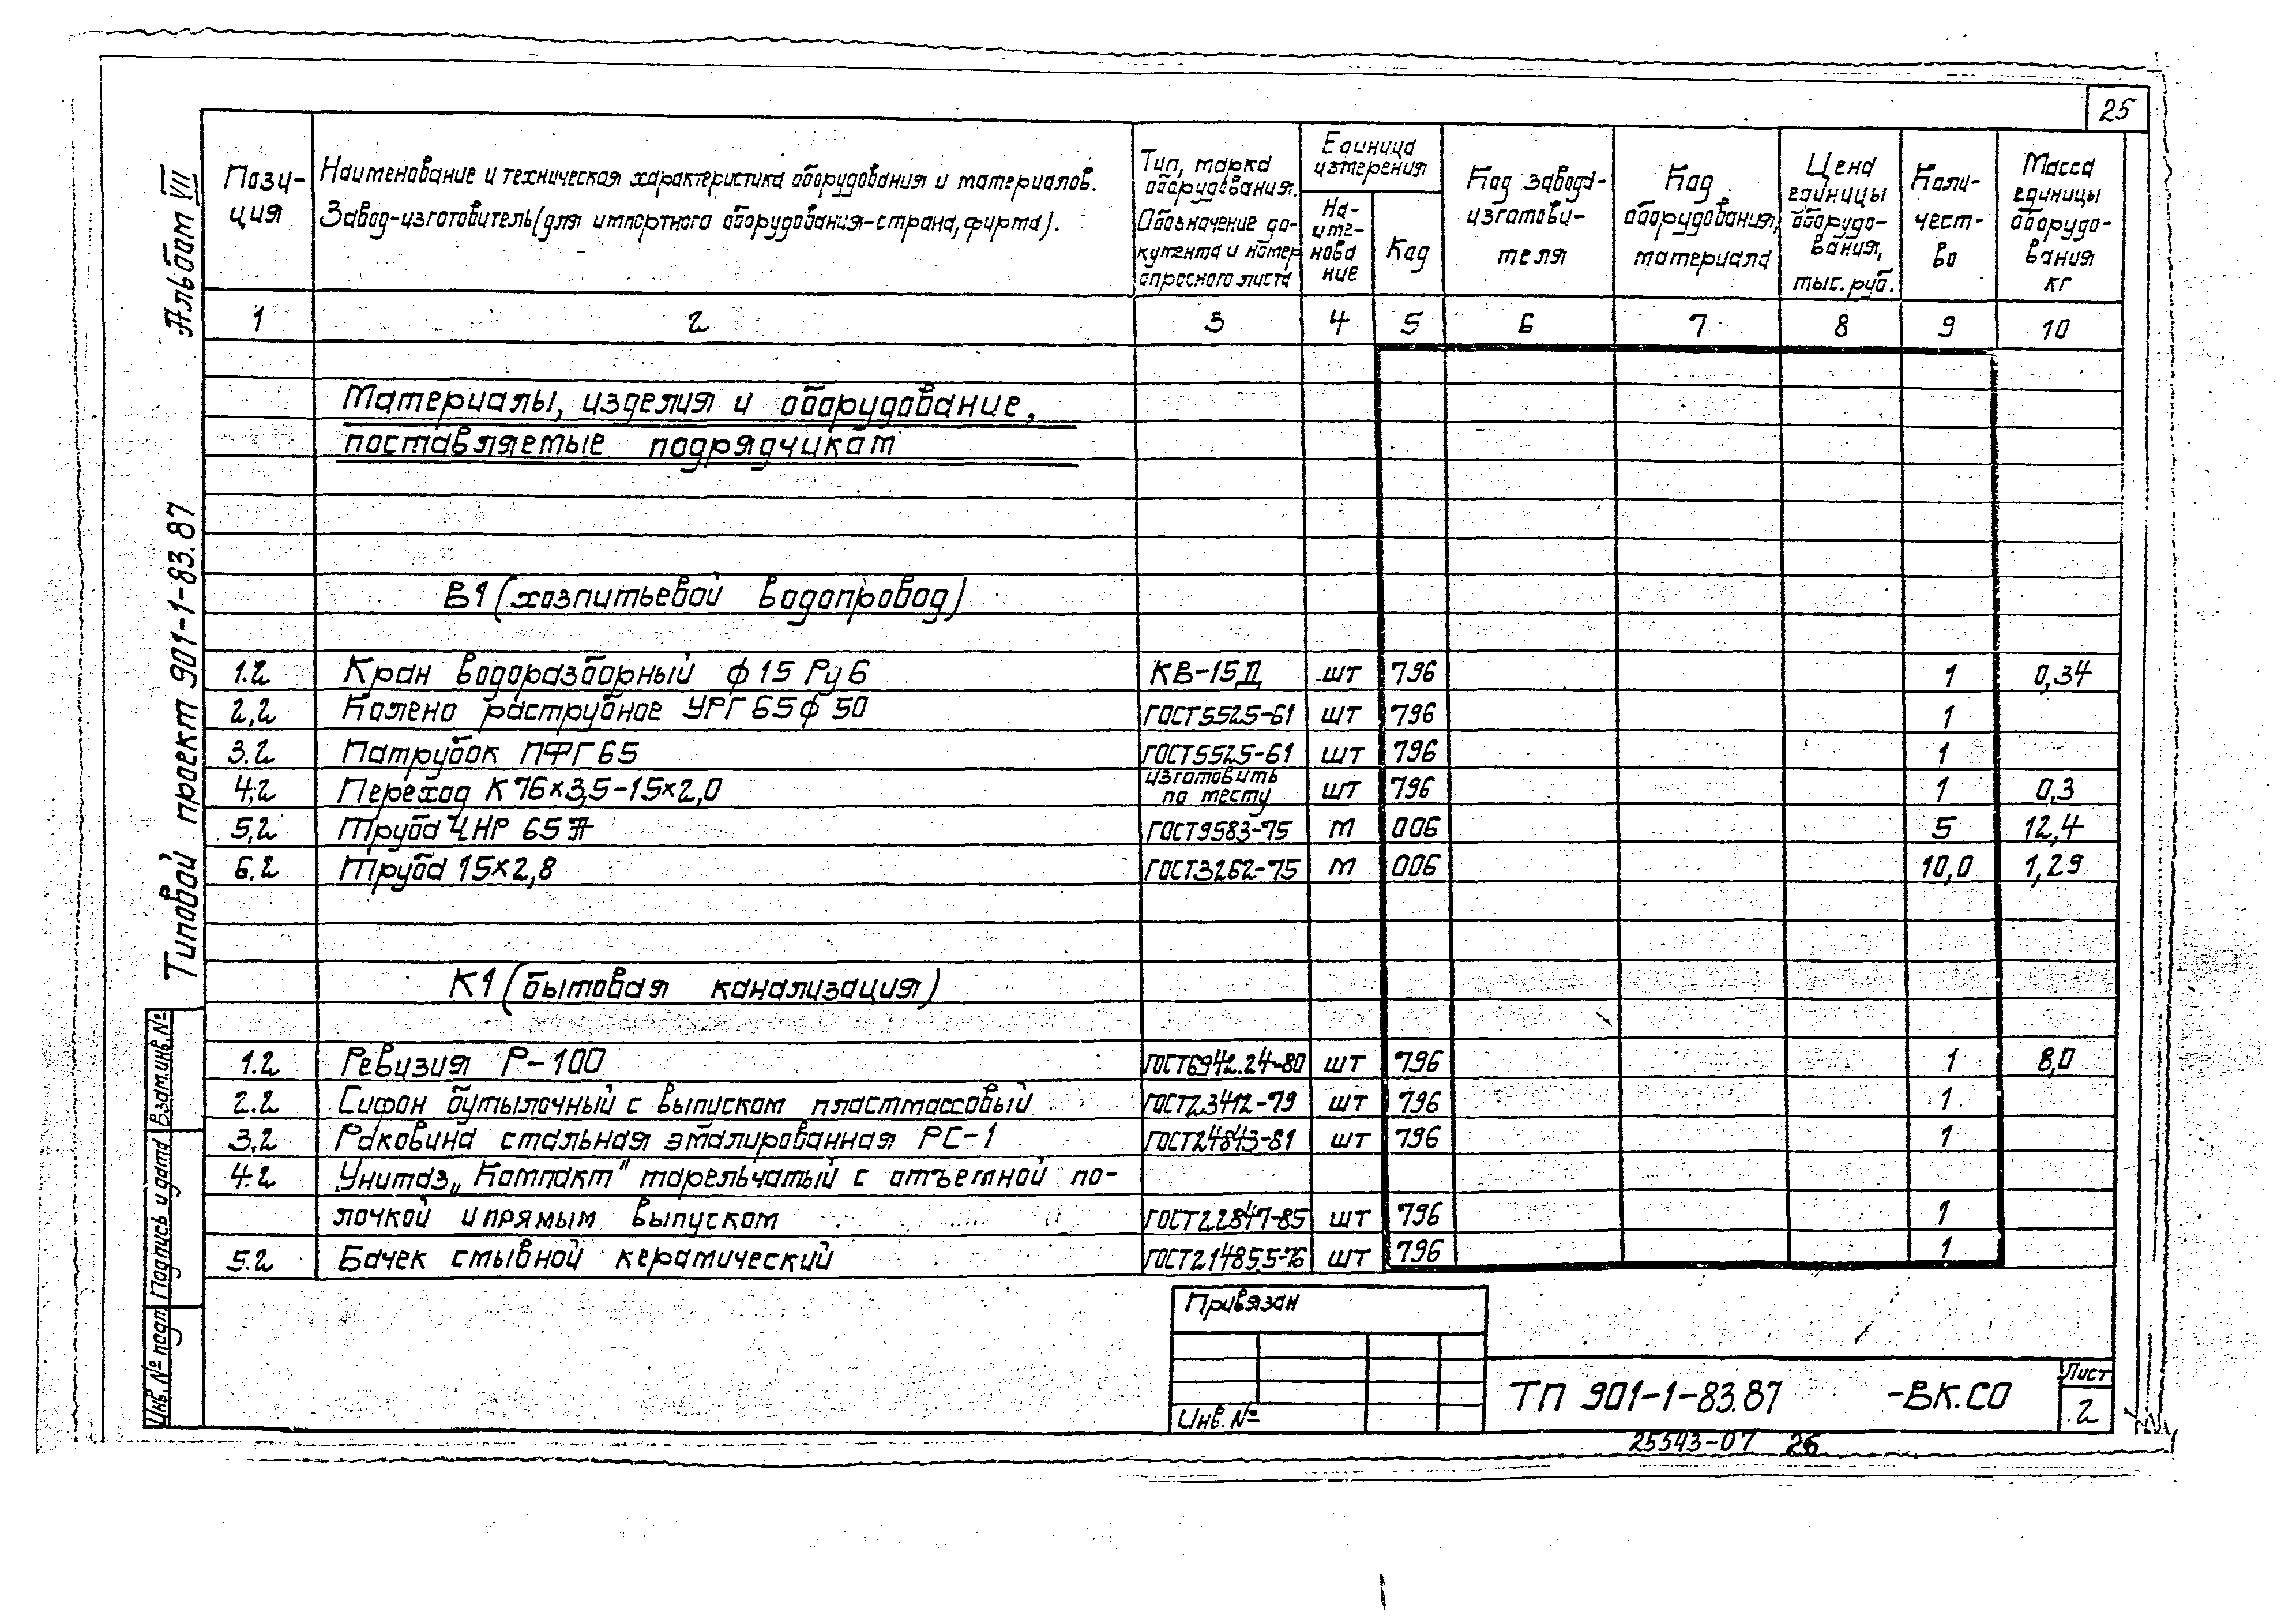 25
Альбом VII
Типовой проект 901-1-83.87
Пози-
ция
Наименование и техническая характеристика оборудования и материалов.
Завод-изготовитель (для импортного оборудования-страна, фирма).
Тип, марка
оборудования.
Обозначение до-
кумента и номер
опросного листа
Единица
измерения
На-
име-
нова
ние
Код
Код завода-
изготови-
теля
Код
оборудования,
материала
Цена
единицы
оборудо-
вания,
тыс. руб.
Коли-
чест-
во
Масса
единицы
оборудо-
вания
кг
1 2 3 4 5 6 7 8 9 10
Материалы, изделия и оборудование,
поставляемые подрядчикам
В1 (хозпитьевой водопровод)
1.2 Кран водоразборный ф 15 Ру 6 КВ-15Д шт 796 1 0,34
2,2 Колено раструбное УРГ 65 ф 50 ГОСТ 5525-61 шт 796 1
3.2 Патрубок ПФГ 65 ГОСТ 5525-61 шт 796 1
4,2 Переход К 76×3,5-15×2,0 изготовить по месту шт 796 1 0,3
5,2 Труба ЧНР 65 А ГОСТ 9583-75 м 006 5 12,4
6.2 Труба 15×2,8 ГОСТ 3262-75 м 006 10,0 1,29
К1 (бытовая канализация)
1.2 Ревизия Р-100 ГОСТ 6942.24-80 шт 796 1 8,0
2.2 Сифон бутылочный с выпуском пластмассовый ГОСТ 23412-79 шт 796 1
3.2 Раковина стальная эмалированная РС-1 ГОСТ 24843-81 шт 796 1
4.2 Унитаз „Компакт" тарельчатый с отъемной по-
лочкой и прямым выпуском ГОСТ 22847-85 шт 796 1
5.2 Бачек смывной керамический ГОСТ 21485.5-76 шт 796 1
Взам.инв.№
Подпись и дата
Инв. № подл.
Привязан
Инв. №
ТП 901-1-83.87 -ВК.СО
Лист
2
25543-07 26